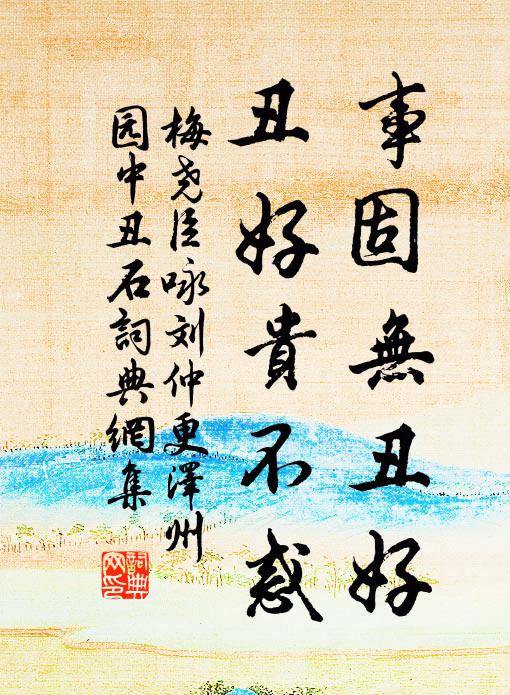 事固無丑好
丑好貴不惑
梅尧臣咏刘仲更澤州
园中丑石詞典網集